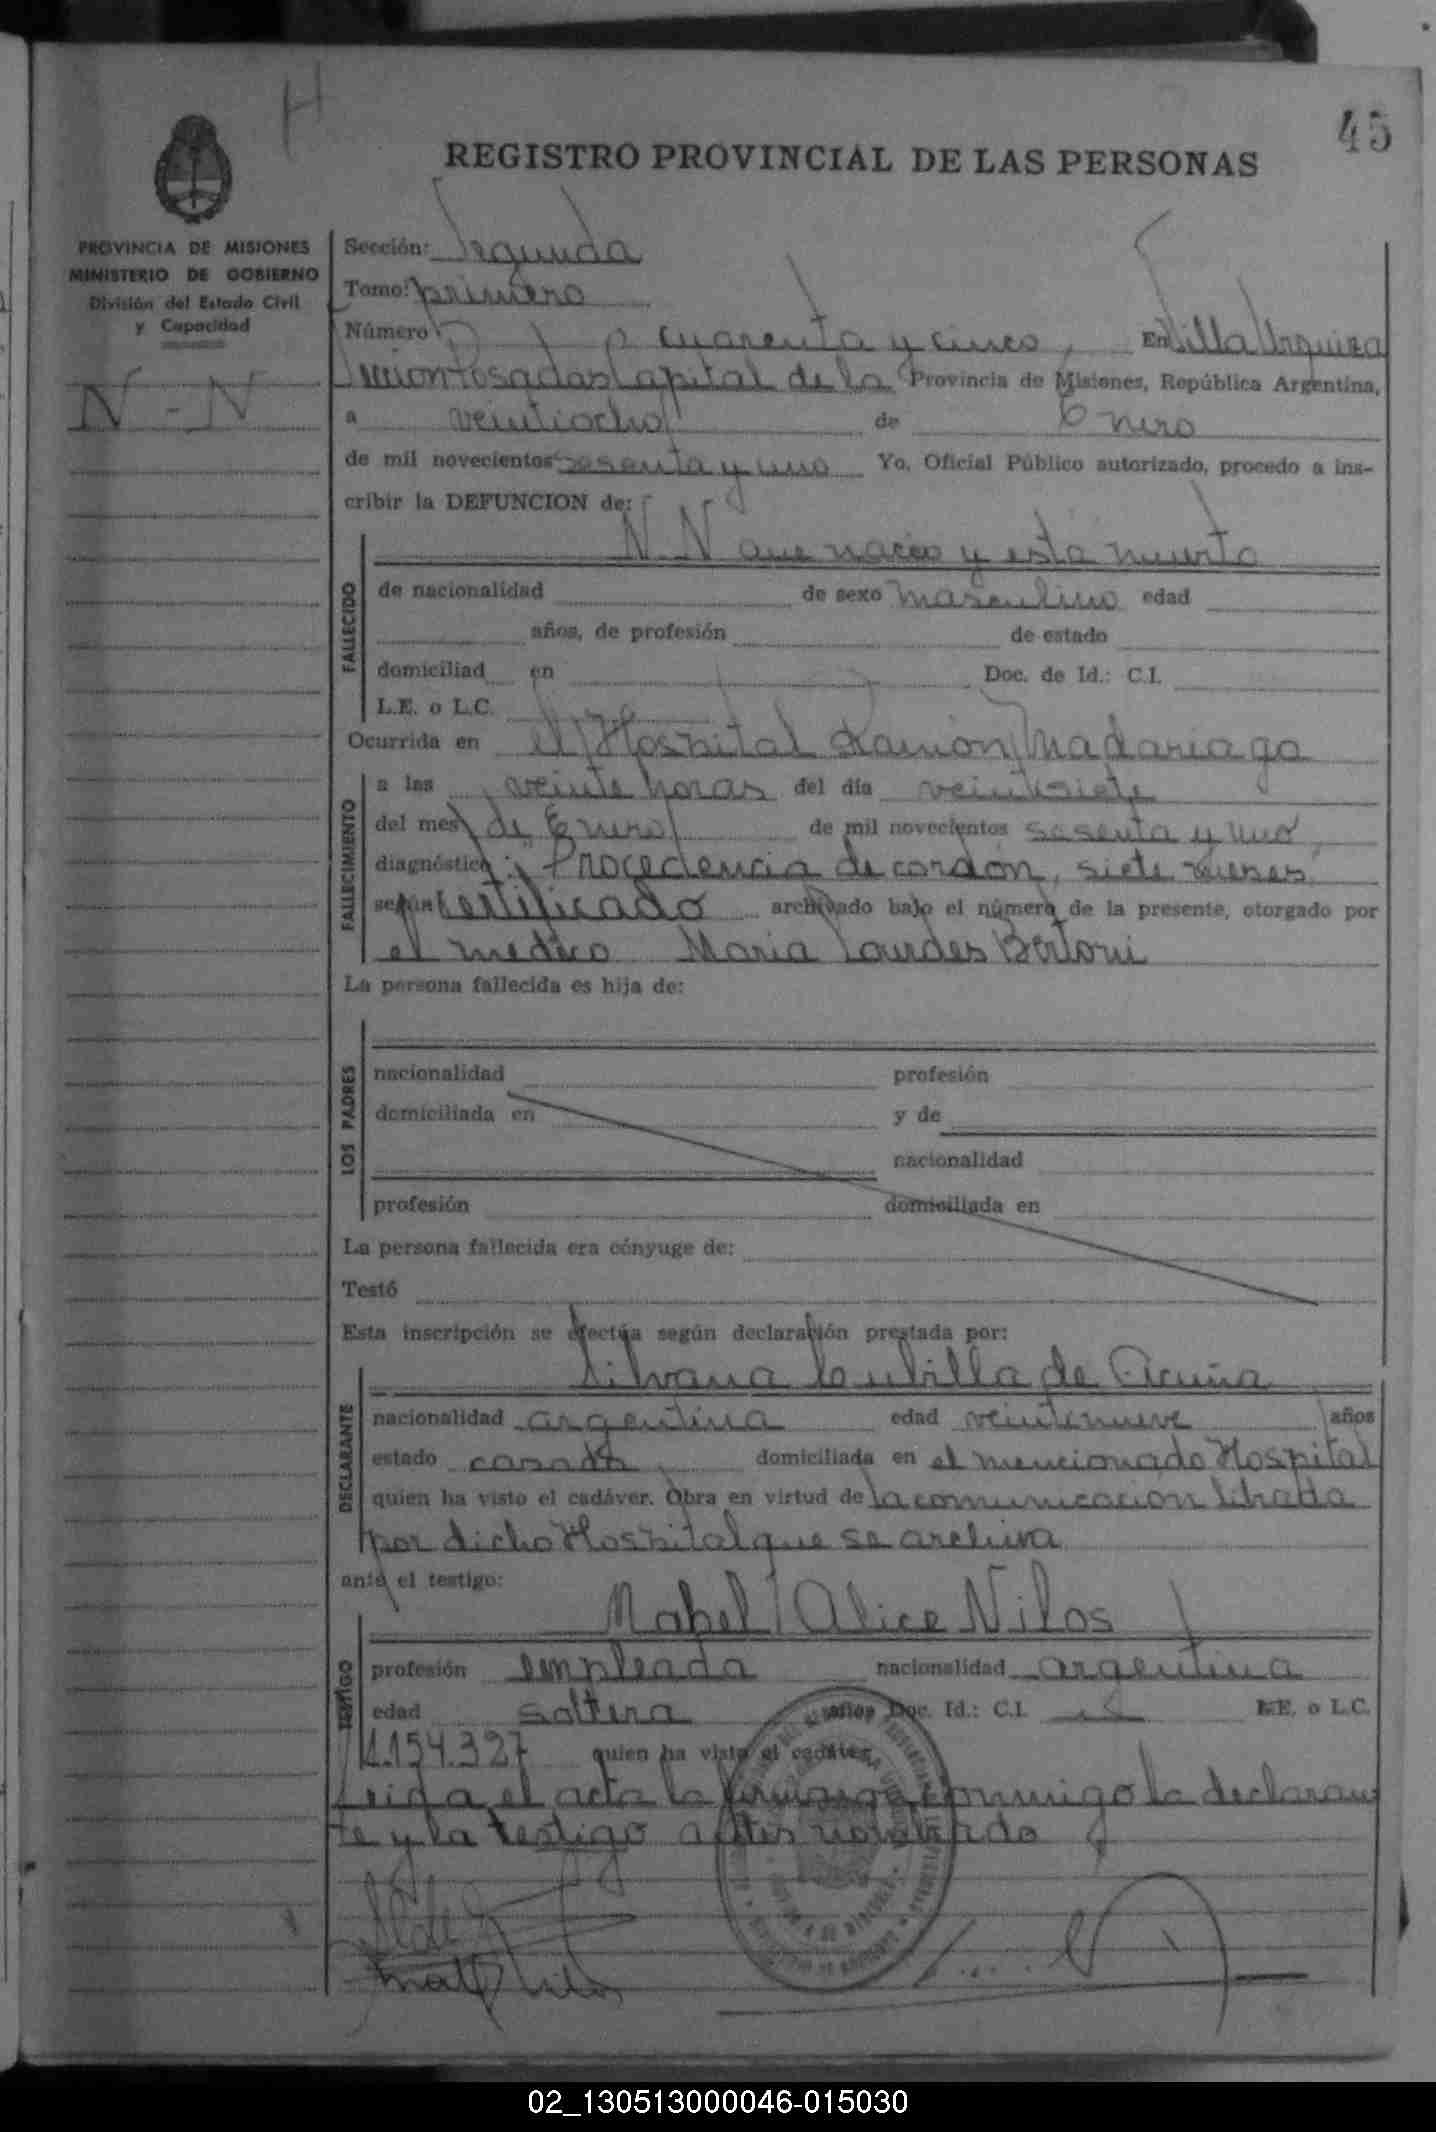 H
45
REGISTRO PROVINCIAL DE LAS PERSONAS
PROVINCIA DE MISIONES
MINISTERIO DE GOBIERNO
División del Estado Civil
y Capacidad
N - N
Sección: Segunda
Tomo: primero
Número cuarenta y cinco, En Villa Urquiza
Posadas Capital de la Provincia de Misiones, República Argentina,
a veintiocho de Enero
de mil novecientos sesenta y uno Yo, Oficial Público autorizado, procedo a ins-
cribir la DEFUNCION de:
N. N que nacio y está muerto
FALLECIDO
de nacionalidad de sexo masculino edad
años, de profesión de estado
domiciliad en Doc. de Id.: C.I.
L.E. o L.C.
Ocurrida en el Hospital Ramón Madariaga
FALLECIMIENTO
a las veinte horas del día veintisiete
del mes de Enero de mil novecientos sesenta y uno,
diagnóstico: "Procedencia de cordón, siete meses"
según certificado archivado bajo el número de la presente, otorgado por
el medico Maria Lourdes Bertoni
La persona fallecida es hija de:
LOS PADRES
nacionalidad profesión
domiciliada en y de
nacionalidad
profesión domiciliada en
La persona fallecida era cónyuge de:
Testó
Esta inscripción se efectúa según declaración prestada por:
Silvana Cubilla de Acuña
DECLARANTE
nacionalidad argentina edad veintinueve años
estado casada, domiciliada en el mencionado Hospital
quien ha visto el cadáver. Obra en virtud de la comunicacion librada
por dicho Hospital que se archiva
ante el testigo:
Mabel Alice Nilos
TESTIGO
profesión empleada nacionalidad argentina
edad soltera años Doc. Id.: C.I. L.E. o L.C.
1.154.327 quien ha visto el cadáver
Leida el acta la firman conmigo la declaran
te y la testigo antes nombrado
02_130513000046-015030